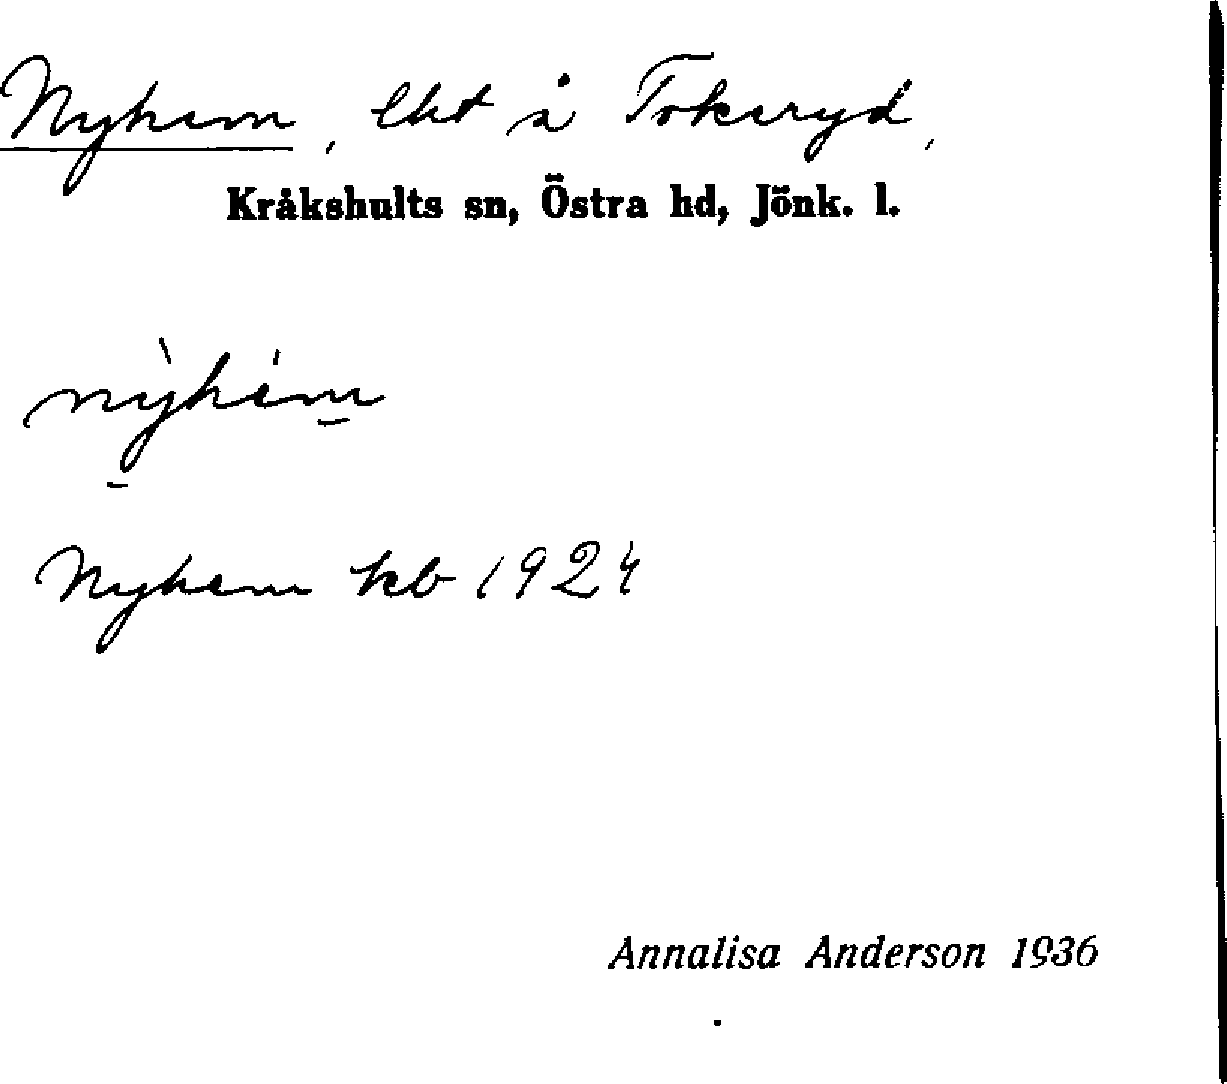 Nyhem, lht å Tokeryd,
Kråkshults sn, Östra hd, Jönk. l.
nỳhém
Nyhem kb 1924
Annalisa Anderson 1936